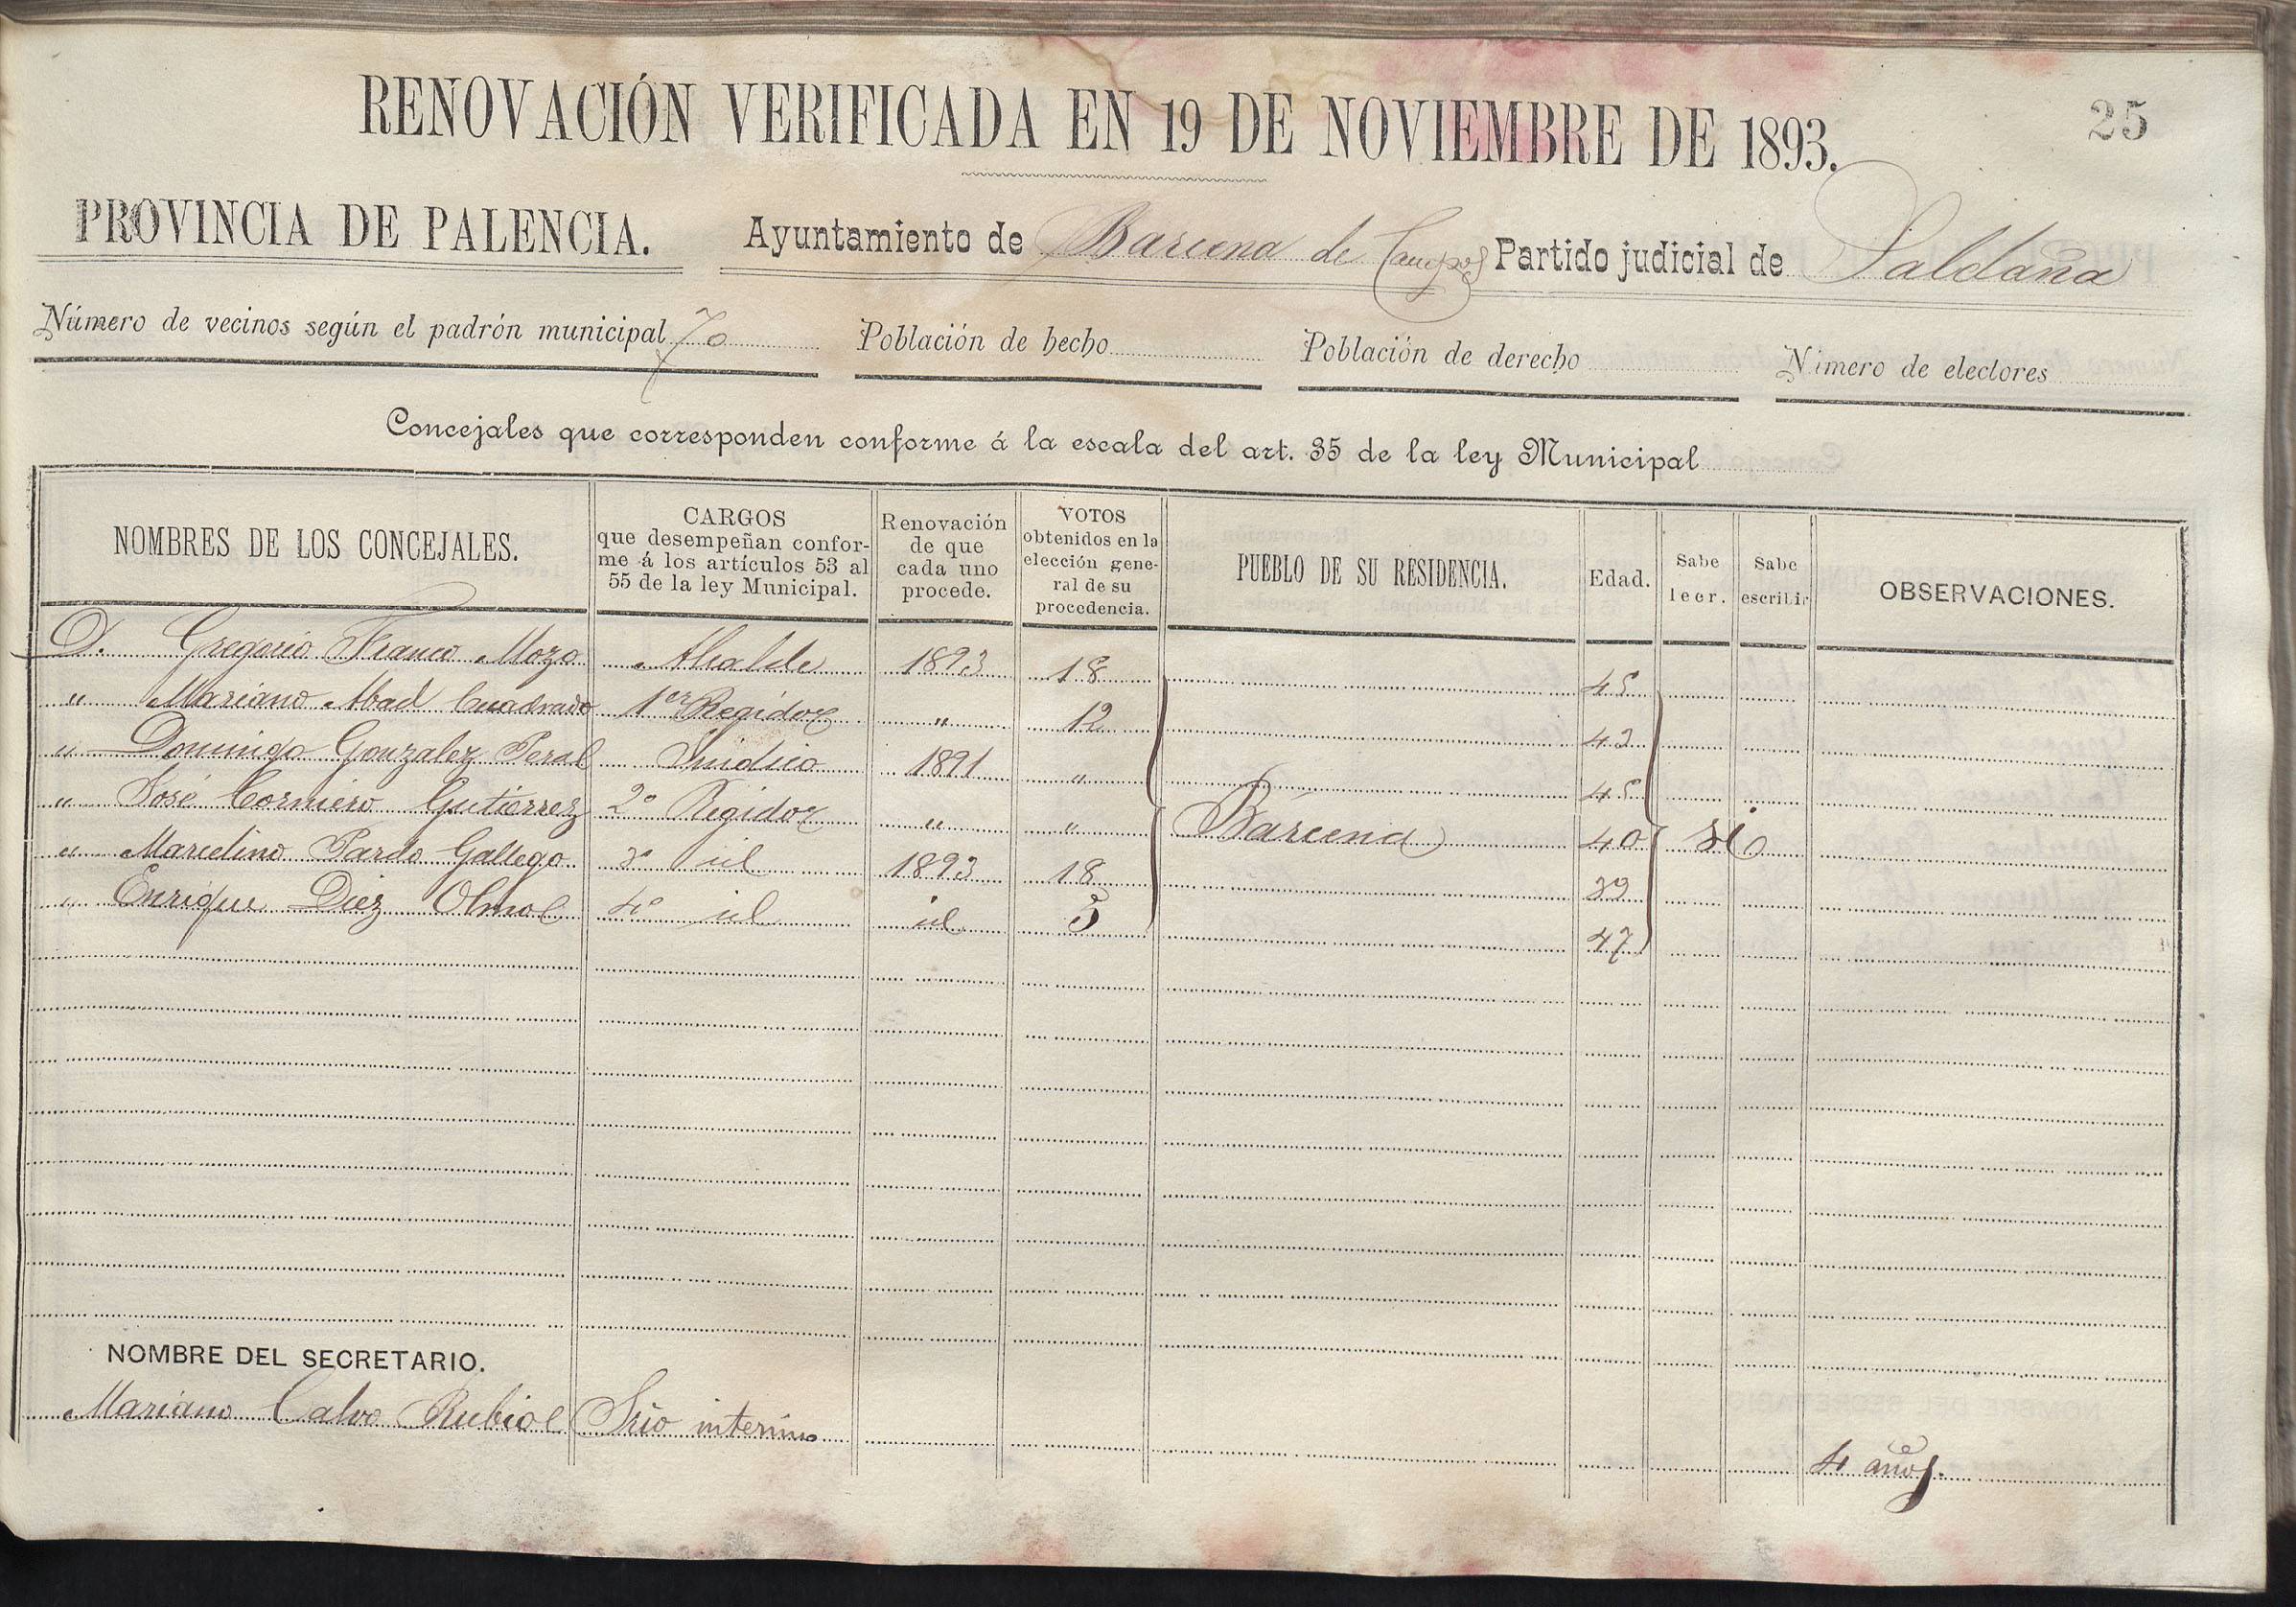 25
RENOVACIÓN VERIFICADA EN 19 DE NOVIEMBRE DE 1893.
PROVINCIA DE PALENCIA. Ayuntamiento de Barcena de Campos Partido judicial de Saldaña
Número de vecinos según el padrón municipal 70 Población de hecho Población de derecho Número de electores
Concejales que corresponden conforme á la escala del art. 35 de la ley Municipal
NOMBRES DE LOS CONCEJALES.
CARGOS
que desempeñan confor-
me á los artículos 53 al
55 de la ley Municipal.
Renovación
de que
cada uno
procede.
VOTOS
obtenidos en la
elección gene-
ral de su
procedencia.
PUEBLO DE SU RESIDENCIA.
Edad.
Sabe
leer.
Sabe
escribir
OBSERVACIONES.
D. Gregorio Franco Mozo Alcalde 1893 18 45
" Mariano Abad Cuadrado 1er Regidor " 12 42
" Domingo Gonzalez Peral Sindico 1891 " 45
" José Cormiero Gutierrez 2º Regidor " " Bárcena 40 si
" Marcelino Pardo Gallego 3º id 1893 18 39
" Enrique Diez Olmo id 4º id 5 47
NOMBRE DEL SECRETARIO.
Mariano Calvo Rubio Srio interino 4 años.